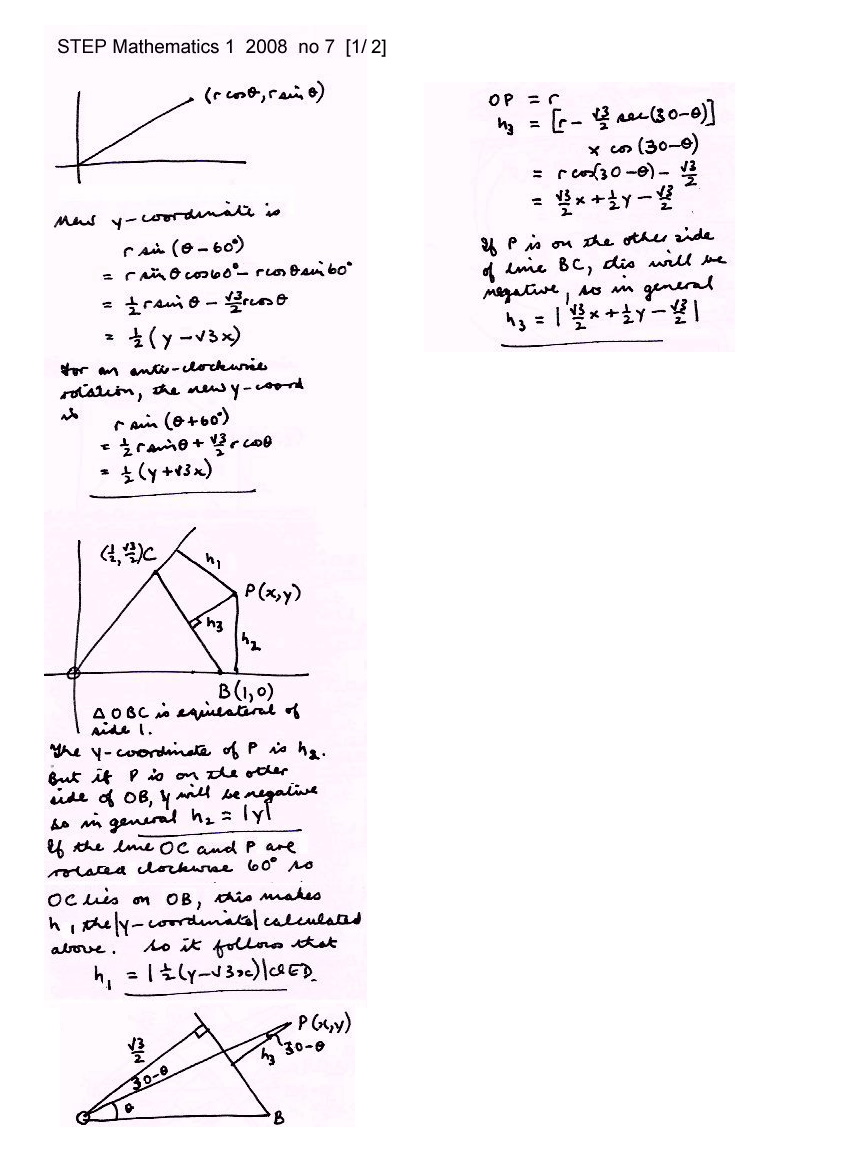 STEP Mathematics 1 2008 no 7 [1/ 2]
(r cosθ, r sin θ)
New y-coordinate is
r sin (θ-60°)
= r sin θ cos60° - r cos θ sin 60°
= ½ r sin θ - √3/2 r cos θ
= ½ (y - √3x)
For an anti-clockwise
rotation, the new y-coord
is
r sin (θ+60°)
= ½ r sinθ + √3/2 r cosθ
= ½ (y + √3x)
(½, √3/2) C
h₁
P (x, y)
h₃
h₂
B (1, 0)
Δ OBC is equilateral of
side 1.
The y-coordinate of P is h₂.
But if P is on the other
side of OB, y will be negative
so in general h₂ = |y|
If the line OC and P are
rotated clockwise 60° so
OC lies on OB, this makes
h₁ the |y-coordinate| calculated
above. So it follows that
h₁ = |½(y-√3x)| QED.
P (x, y)
√3/2
30-θ
h₃
30-θ
θ
B
OP = r
h₃ = [r - √3/2 sec(30-θ)]
× cos (30-θ)
= r cos(30-θ) - √3/2
= √3/2 x + ½ y - √3/2
If P is on the other side
of line BC, this will be
negative, so in general
h₃ = | √3/2 x + ½ y - √3/2 |